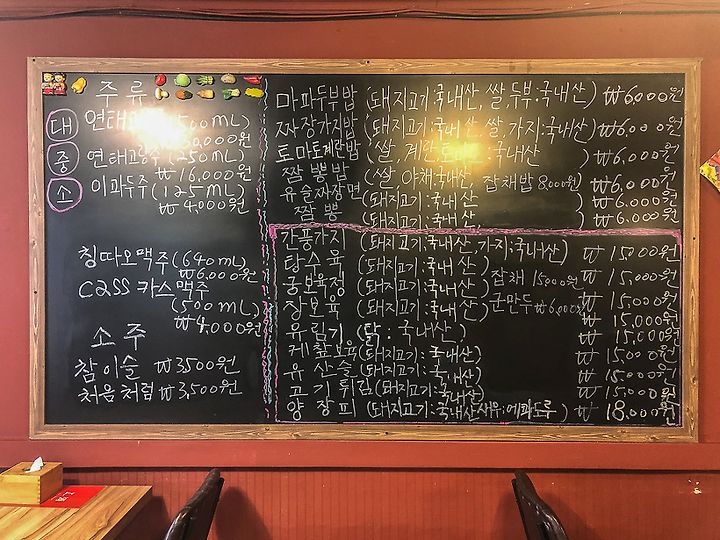 주류
대 연태고 (500ML)
30,000원
중 연태고량주 (250ML)
₩16,000원
소 이과두주 (125ML)
₩4,000원
칭따오맥주 (640ML)
₩6,000원
CASS 카스맥주
(500ML)
₩4,000원
소주
참이슬 ₩3500원
처음처럼 ₩3,500원
마파두부밥 (돼지고기:국내산, 쌀,두부:국내산) ₩6,000원
짜장가지밥 (돼지고기:국내산, 쌀,가지:국내산) ₩6,000원
토마토계란밥 (쌀,계란,토마토:국내산) ₩6,000원
짬뽕밥 (쌀,야채:국내산, 잡채밥 8,000원) ₩6,000원
유슬짜장면 (돼지고기:국내산) ₩6,000원
짬뽕 (돼지고기:국내산) ₩6,000원
간풍가지 (돼지고기:국내산,가지:국내산) ₩15,000원
탕수육 (돼지고기:국내산) 잡채 15000원 ₩15,000원
궁보육정 (돼지고기:국내산) ₩15,000원
장보육 (돼지고기:국내산) 군만두 ₩6,000원 ₩15,000원
유림기 (닭:국내산) ₩15,000원
케찹보육 (돼지고기:국내산) ₩15,000원
유산슬 (돼지고기:국내산) ₩15,000원
고기튀김 (돼지고기:국내산) ₩15,000원
양장피 (돼지고기:국내산새우:에콰도루) ₩18,000원